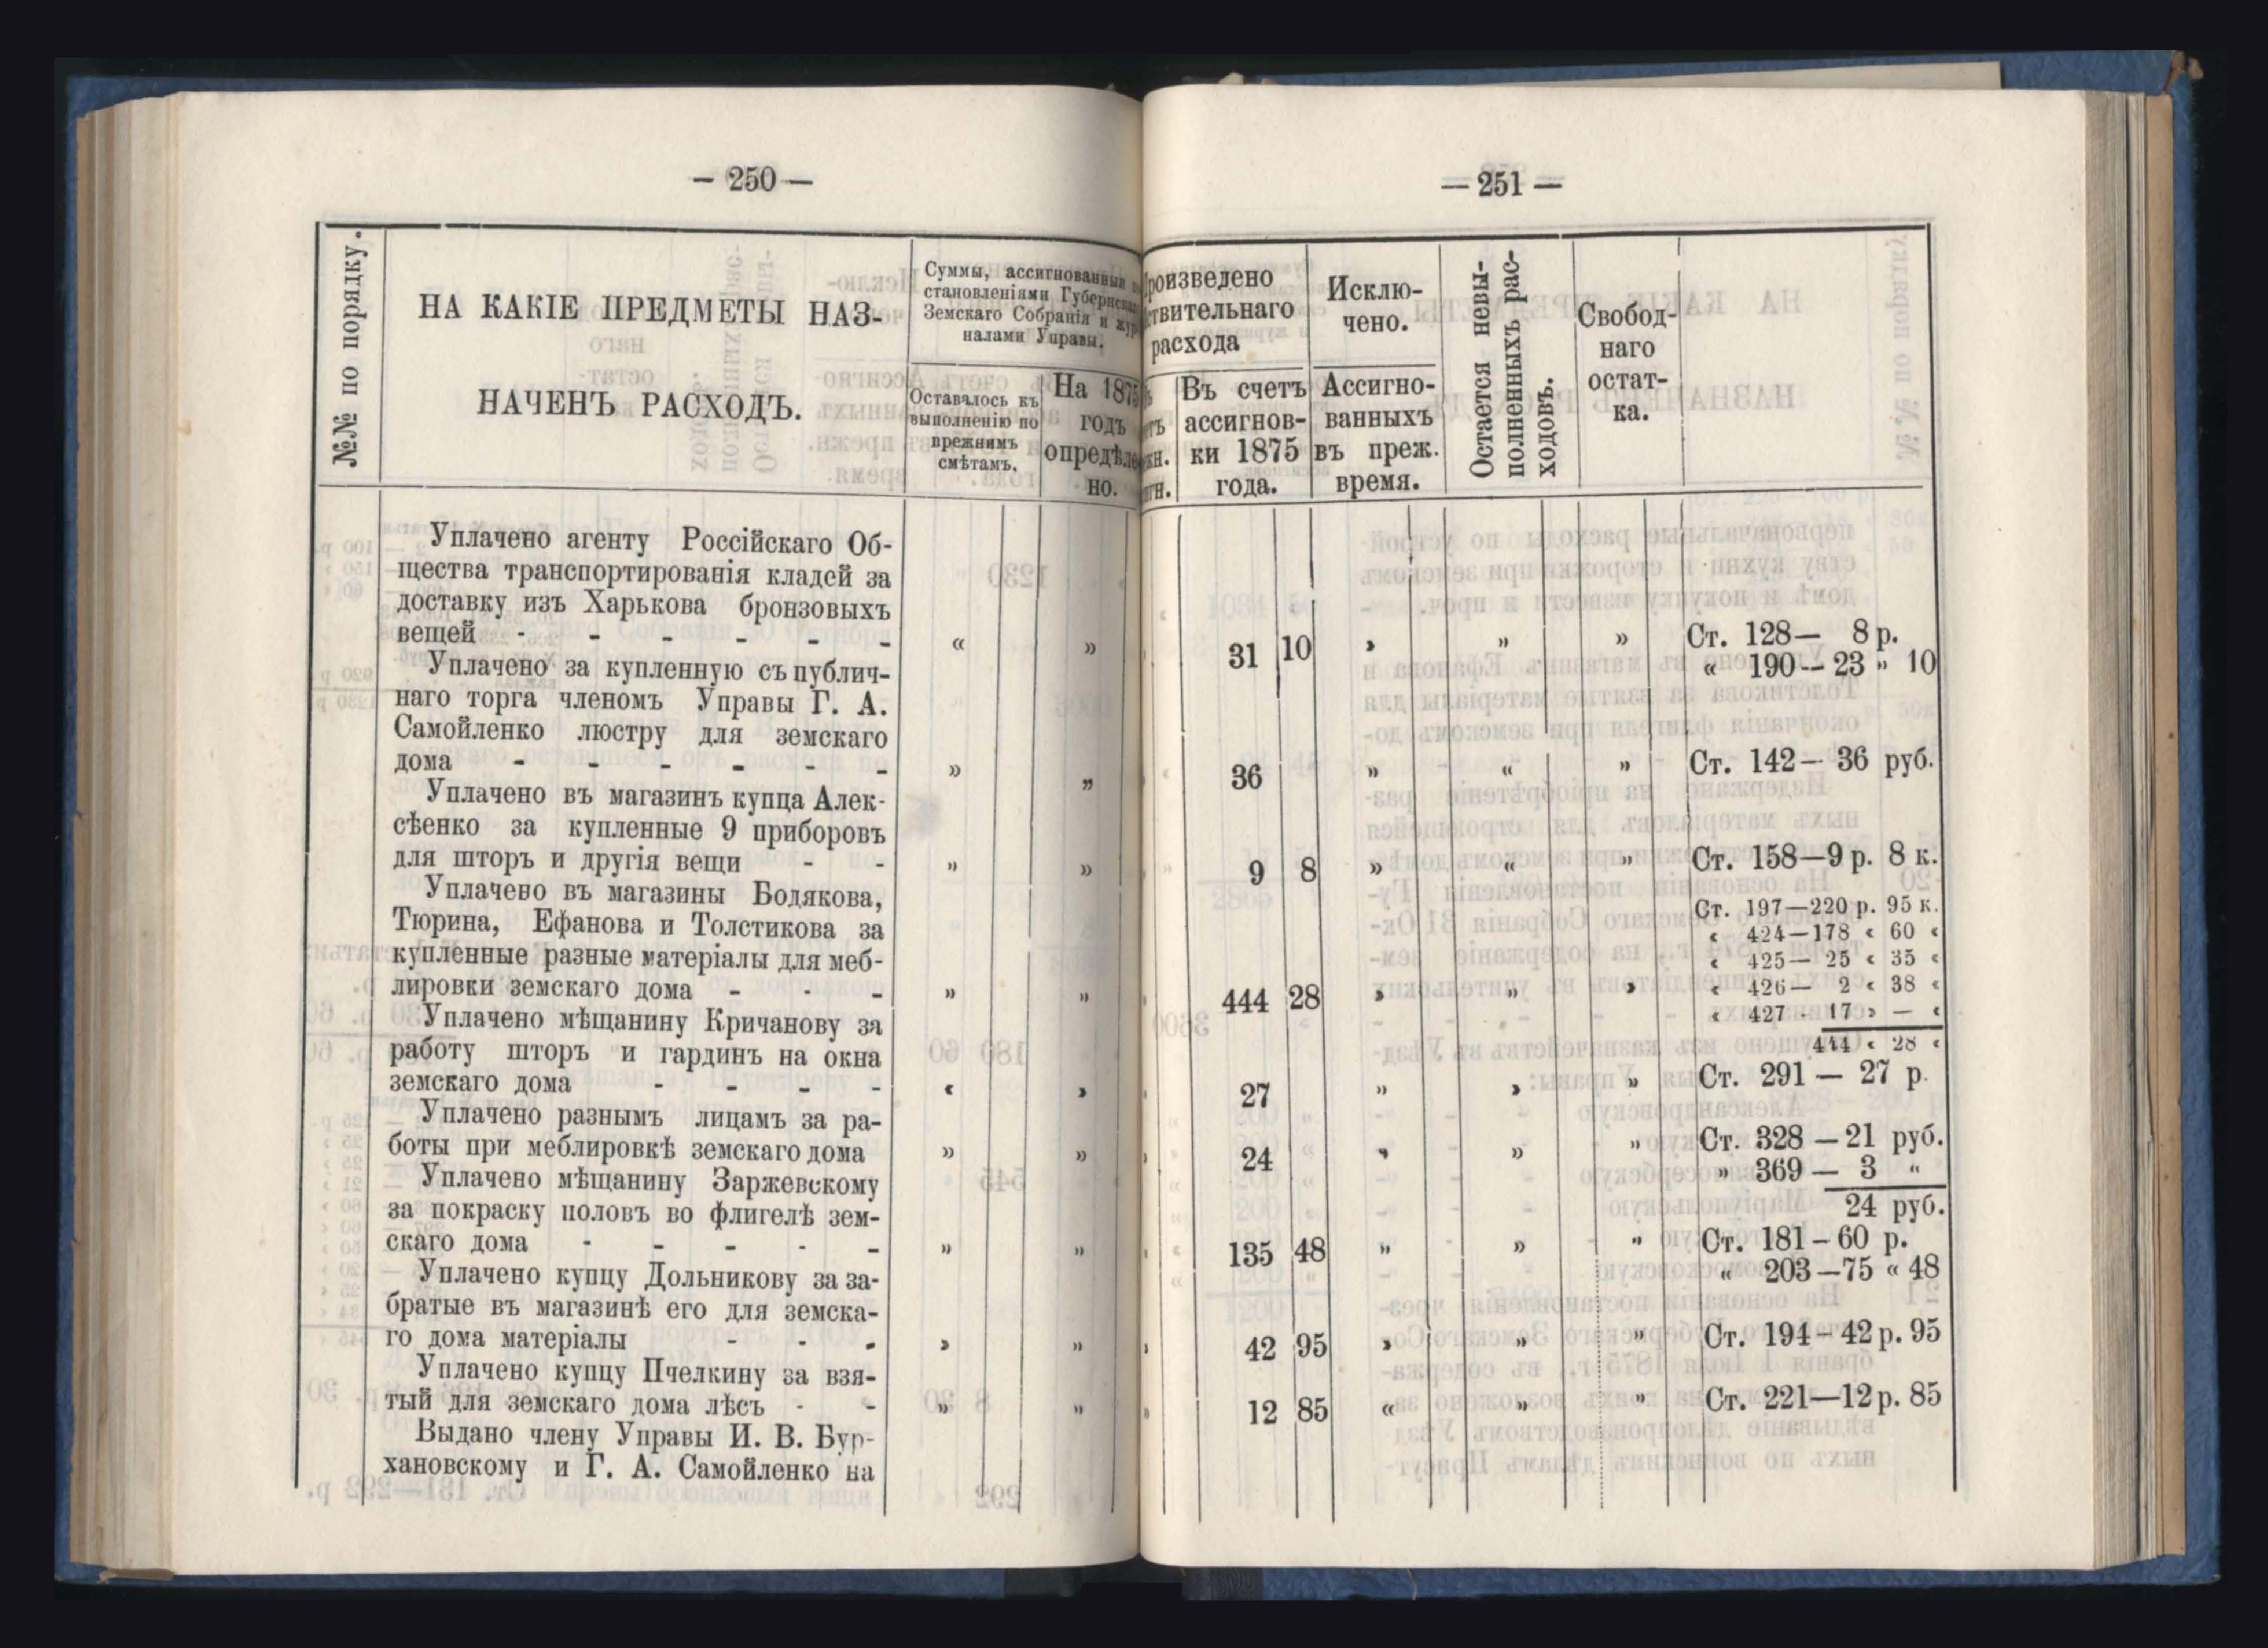 — 250 —
№№ по порядку.
НА КАКІЕ ПРЕДМЕТЫ НАЗ-
НАЧЕНЪ РАСХОДЪ.
Суммы, ассигнованныя
становленіями Губернска
Земскаго Собранія и жур
налами Управы.
Оставалось къ
выполненію по
прежнимъ
смѣтамъ.
На 1875
годъ
опредѣле
но.
Уплачено агенту Россійскаго Об-
щества транспортированія кладей за
доставку изъ Харькова бронзовыхъ
вещей - - - - - - « »
Уплачено за купленную съ публич-
наго торга членомъ Управы Г. А.
Самойленко люстру для земскаго
дома - - - - - - » „
Уплачено въ магазинъ купца Алек-
сѣенко за купленные 9 приборовъ
для шторъ и другія вещи - - „ »
Уплачено въ магазины Бодякова,
Тюрина, Ефанова и Толстикова за
купленные разные матеріалы для меб-
лировки земскаго дома - - - » »
Уплачено мѣщанину Кричанову за
работу шторъ и гардинъ на окна
земскаго дома - - - - ‹ ›
Уплачено разнымъ лицамъ за ра-
боты при меблировкѣ земскаго дома » »
Уплачено мѣщанину Заржевскому
за покраску половъ во флигелѣ зем-
скаго дома - - - - - » »
Уплачено купцу Дольникову за за-
братые въ магазинѣ его для земска-
го дома матеріалы - - - › »
Уплачено купцу Пчелкину за взя-
тый для земскаго дома лѣсъ - - „ »
Выдано члену Управы И. В. Бур-
хановскому и Г. А. Самойленко на
— 251 —
роизведено
ствительнаго
расхода
Въ счетъ
ассигнов-
ки 1875
года.
Исклю-
чено.
Ассигно-
ванныхъ
въ преж.
время.
Остается невы-
полненныхъ рас-
ходовъ.
Свобод-
наго
остат-
ка.
31 10 › » » Ст. 128— 8 р.
« 190 — 23 „ 10
36 » « » Ст. 142— 36 руб.
9 8 » « » Ст. 158—9 р. 8 к.
Ст. 197—220 р. 95 к.
‹ 424—178 ‹ 60 ‹
‹ 425— 25 ‹ 35 ‹
444 28 › » › ‹ 426— 2 ‹ 38 ‹
‹ 427 - 17 › — ‹
444 ‹ 28 ‹
27 » › » Ст. 291 — 27 р.
24 › » » Ст. 328 —21 руб.
» 369 — 3 „
24 руб.
135 48 » » » Ст. 181 — 60 р.
« 203—75 « 48
42 95 › » » Ст. 194 — 42 р. 95
12 85 « » » Ст. 221—12 р. 85